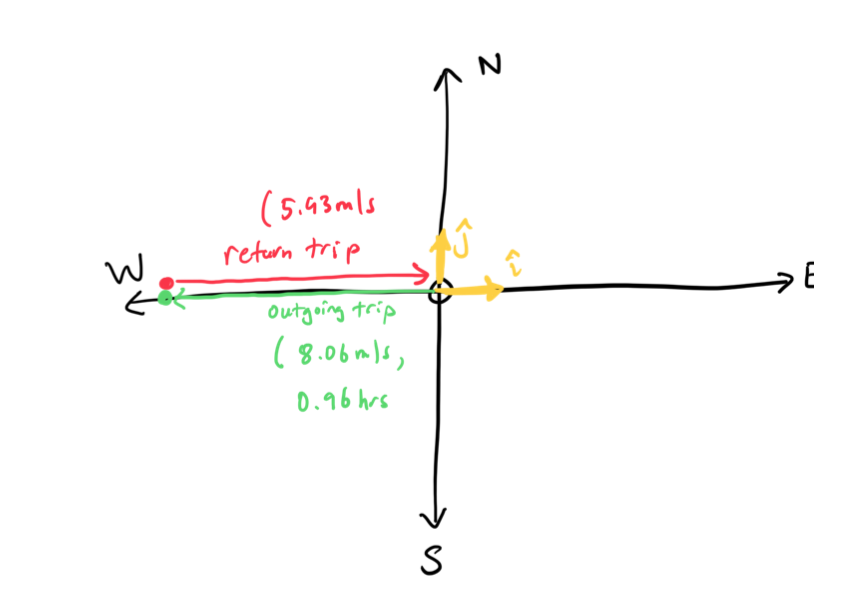 N
(5.93m/s
return trip
ĵ
î
W
E
outgoing trip
(8.06m/s,
0.96hrs
S